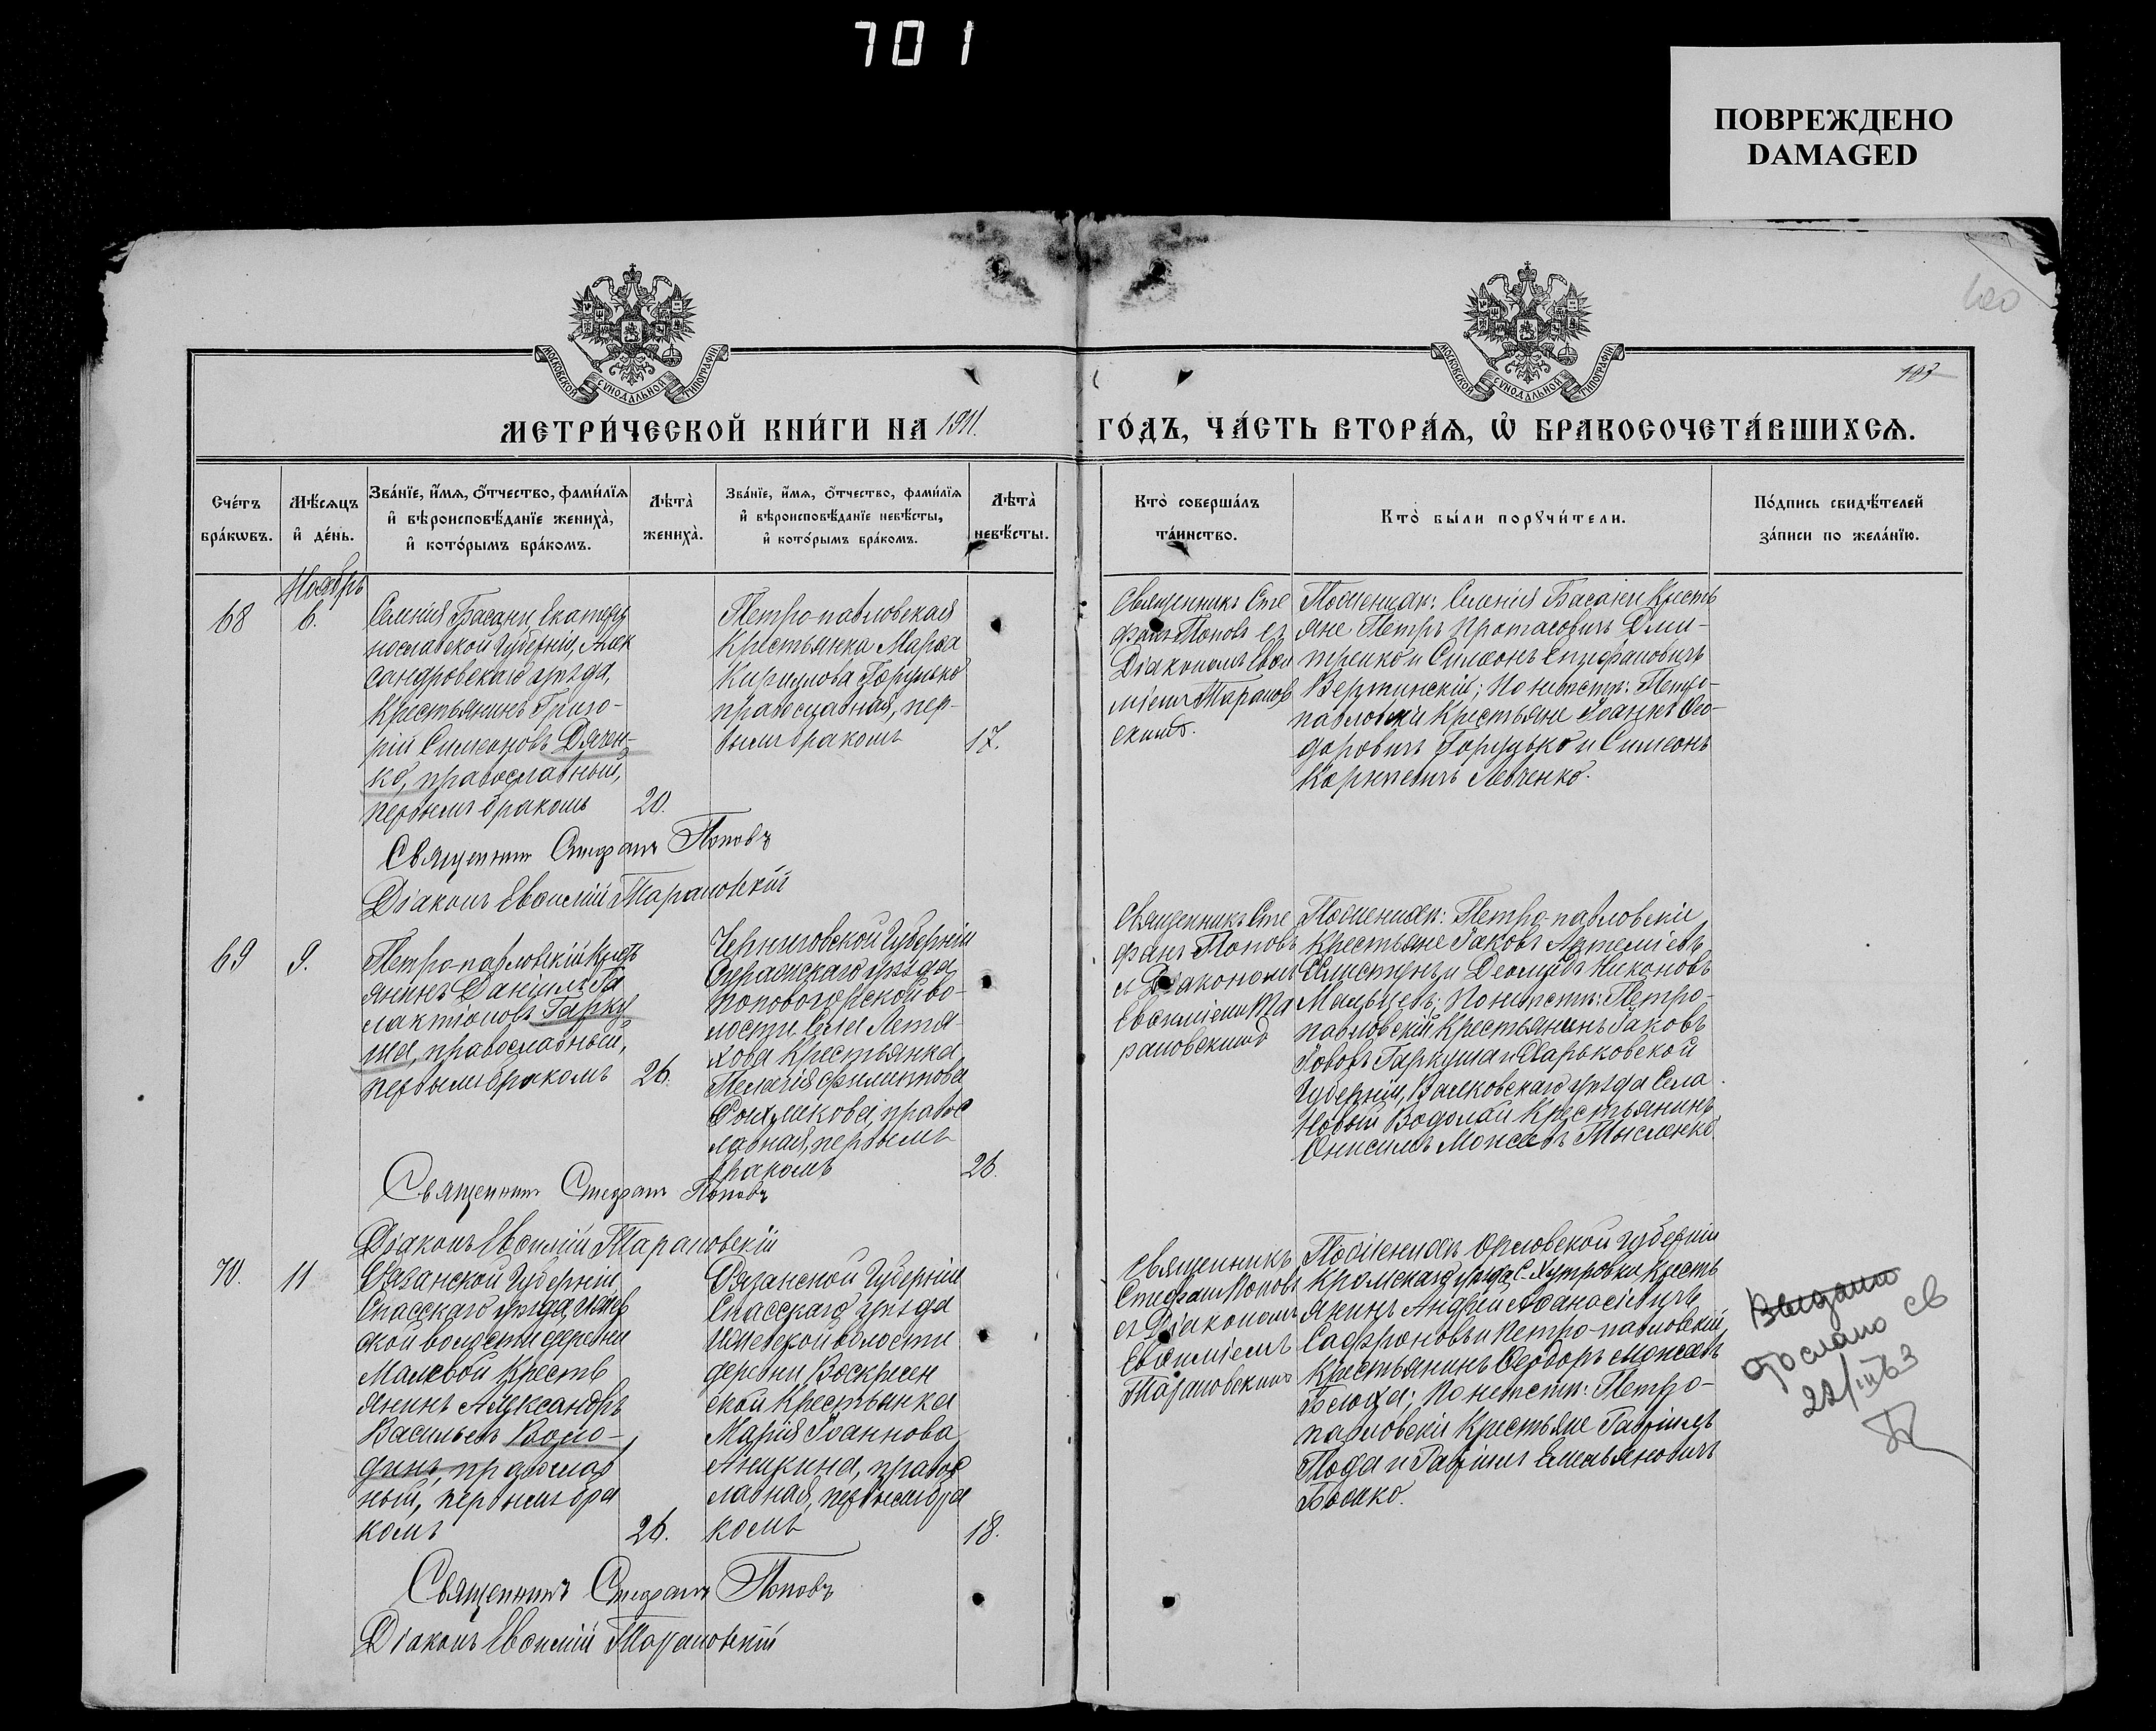 701
ПОВРЕЖДЕНО
DAMAGED
МОСКОВСКОЙ СѴНОДАЛЬНОЙ ТИПОГРАФІИ
МОСКОВСКОЙ СѴНОДАЛЬНОЙ ТИПОГРАФІИ
МЕТРИ́ЧЕСКОЙ КНИ́ГИ НА 1911. ГО́ДЪ, ЧА́СТЬ ВТОРА́Ѧ, Ѡ҆ БРАКОСОЧЕТА́ВШИХСѦ.
Сче́тъ
бра́кѡвъ.
Мѣ́сѧцъ
и҆ де́нь.
Зва́нїе, и҆́мѧ, ѻ҆́тчество, фами́лїѧ
и҆ вѣроисповѣ́данїе жениха̀,
и҆ кото́рымъ бра́комъ.
Лѣта̀
жениха̀.
Зва́нїе, и҆́мѧ, ѻ҆́тчество, фами́лїѧ
и҆ вѣроисповѣ́данїе невѣ́сты,
и҆ кото́рымъ бра́комъ.
Лѣта̀
невѣ́сты.
Кто̀ соверша́лъ
та́инство.
Кто̀ бы́ли порꙋчи́тели.
По́дпись свидѣ́телей
за́писи по жела́нїю.
Ноябрь
68
6.
Селенія Басани, Екатери
нославской губерніи, Алек
сандровскаго уѣзда,
крестьянинъ Григо-
рій Симеоновъ Дячен-
ко, православный,
первымъ бракомъ
20.
Петро-павловская
крестьянка Марѳа
Кириллова Горулько
православная, пер-
вымъ бракомъ
17.
Священникъ Сте
фанъ Поповъ съ
Діакономъ Евѳи
міемъ Таранов
скимъ.
По женихѣ: Селенія Басани кресть
яне Петръ Протасовичъ Дми-
тренко и Симеонъ Епифановичъ
Вержинскій; По невѣстѣ: Петро-
павловскіе крестьяне Іоаннъ Ѳео-
доровичъ Горулько и Симеонъ
Карповичъ Левченко.
Священникъ Стефанъ Поповъ
Діаконъ Евѳимій Тарановскій
69
9.
Петро-павловскій кресть
янинъ Даніилъ Га
лактіоновъ Гарку
ша, православный,
первымъ бракомъ
26.
Черниговской губерніи
Суражскаго уѣзда
Поповогорской во-
лости села Летя-
хова крестьянка
Пелагія Филиппова
православ
лавная, первымъ
бракомъ
26.
Священникъ Сте
фанъ Поповъ
съ Діакономъ
Евѳиміемъ Та
рановскимъ
По женихѣ: Петро-павловскіе
крестьяне Іаковъ Артеміевъ
и Деомидъ Никоновъ
По невѣстѣ: Петро-
павловскій крестьянинъ Іаковъ
Іововъ Гаркуша и Харьковской
губерніи, Валковскаго уѣзда села
Новый Водолай крестьянинъ
Онисимъ Моисеевъ Тысленко.
Священникъ Стефанъ Поповъ
Діаконъ Евѳимій Тарановскій
70.
11
Рязанской губерніи
Спасскаго уѣзда, Ижев
ской волости деревни
Малевой кресть
янинъ Александръ
Васильевъ Воло-
динъ, православ
ный, первымъ бра
комъ
26.
Рязанской губерніи
Спасскаго уѣзда
Ижевской волости
деревни Воскресен
ской крестьянка
Марія Іоаннова
Аникина, правос
лавная, первымъ бра
комъ
18.
Священникъ
Стефанъ Поповъ
съ Діакономъ
Евѳиміемъ
Тарановскимъ
По женихѣ Орловской губерніи
Кромскаго уѣзда, с. Хутровки кресть
янинъ Андрей Аѳанасіевичъ
Сафроновъ и Петро-павловскій
крестьянинъ Ѳеодоръ Моисеевъ
Блоха; По невѣстѣ: Петро-
павловскіе крестьяне Гавріилъ
и Гавріилъ Емельяновичъ
Бойко.
Выдано
отослано св
22/III 63
Священникъ Стефанъ Поповъ
Діаконъ Евѳимій Тарановскій